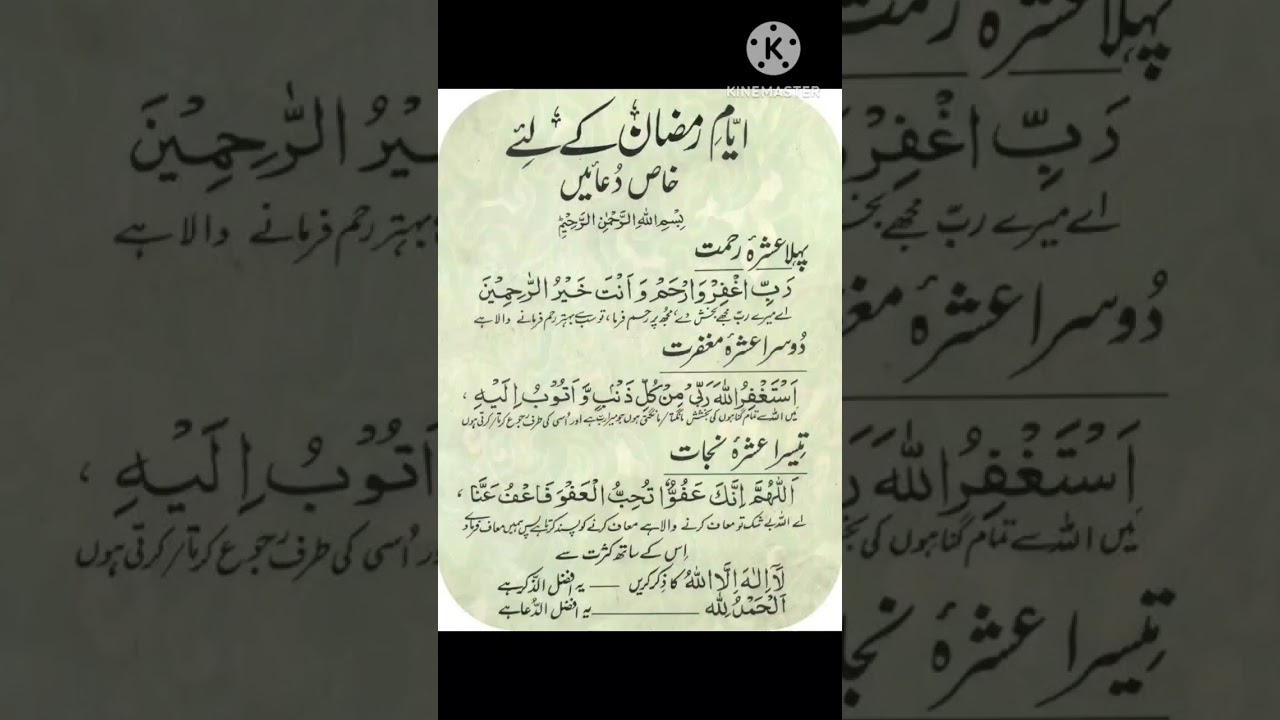 KINEMASTER
ایّامِ رمضان کے لئے
خاص دُعائیں
بِسْمِ اللهِ الرَّحْمٰنِ الرَّحِيْمِ
پہلا عشرۂ رحمت
رَبِّ اغْفِرْ وَارْحَمْ وَ اَنْتَ خَيْرُ الرّٰحِمِيْنَ
اے میرے ربّ مجھے بخش دے، مجھ پر رحم فرما، تو سب سے بہتر رحم فرمانے والا ہے
دُوسرا عشرۂ مغفرت
اَسْتَغْفِرُ اللهَ رَبِّیْ مِنْ كُلِّ ذَنْۢبٍ وَّ اَتُوْبُ اِلَيْهِ ،
میں اللہ سے تمام گناہوں کی بخشش مانگتا/مانگتی ہوں جو میرا ربّ ہے اور اُسی کی طرف رجوع کرتا/کرتی ہوں
تیسرا عشرۂ نجات
اَللّٰهُمَّ اِنَّكَ عَفُوٌّ تُحِبُّ الْعَفْوَ فَاعْفُ عَنَّا ،
اے اللہ بے شک تو معاف کرنے والا ہے معاف کرنے کو پسند کرتا ہے پس ہمیں معاف فرما دے
اِس کے ساتھ کثرت سے
لَآ اِلٰهَ اِلَّا اللهُ کا ذِکر کریں — یہ افضل الذّکر ہے
اَلْحَمْدُ لِلّٰه — یہ افضل الدُّعا ہے